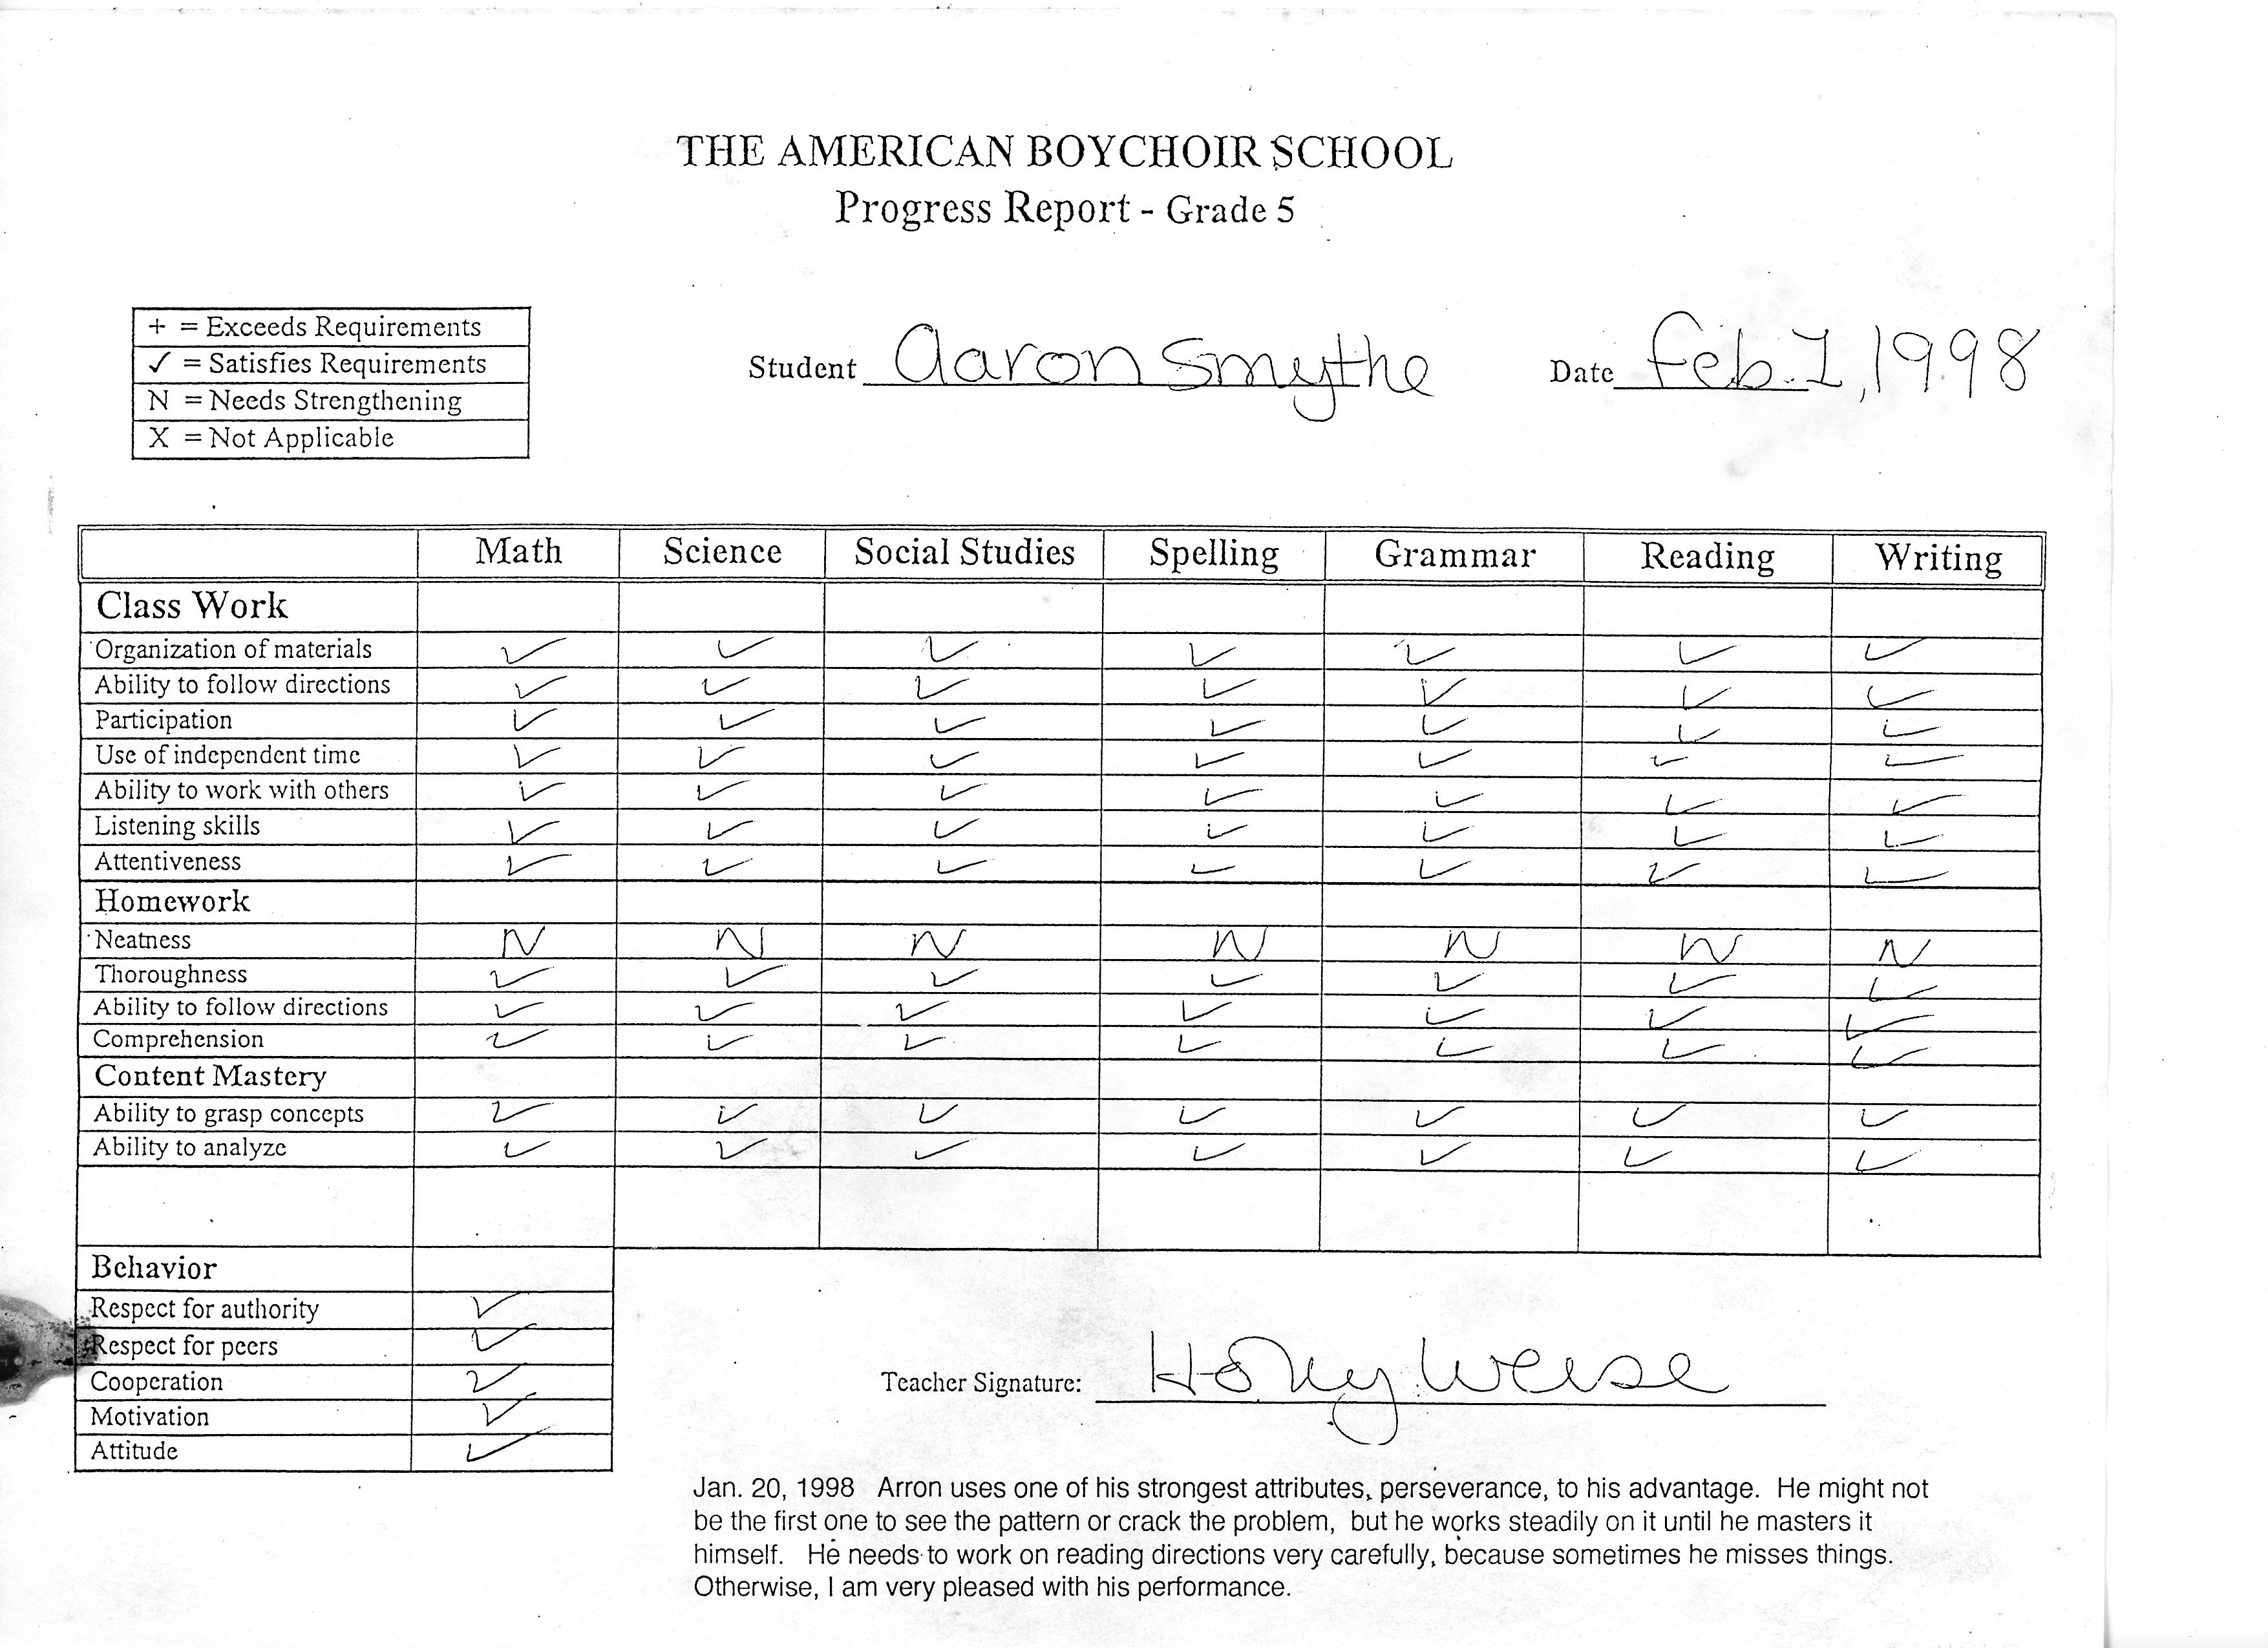 THE AMERICAN BOYCHOIR SCHOOL
Progress Report - Grade 5
+ = Exceeds Requirements
✓ = Satisfies Requirements
N = Needs Strengthening
X = Not Applicable
Student Aaron Smythe Date Feb. 1, 1998
Math Science Social Studies Spelling Grammar Reading Writing
Class Work
Organization of materials ✓ ✓ ✓ ✓ ✓ ✓ ✓
Ability to follow directions ✓ ✓ ✓ ✓ ✓ ✓ ✓
Participation ✓ ✓ ✓ ✓ ✓ ✓ ✓
Use of independent time ✓ ✓ ✓ ✓ ✓ ✓ ✓
Ability to work with others ✓ ✓ ✓ ✓ ✓ ✓ ✓
Listening skills ✓ ✓ ✓ ✓ ✓ ✓ ✓
Attentiveness ✓ ✓ ✓ ✓ ✓ ✓ ✓
Homework
Neatness N N N N N N N
Thoroughness ✓ ✓ ✓ ✓ ✓ ✓ ✓
Ability to follow directions ✓ ✓ ✓ ✓ ✓ ✓ ✓
Comprehension ✓ ✓ ✓ ✓ ✓ ✓ ✓
Content Mastery
Ability to grasp concepts ✓ ✓ ✓ ✓ ✓ ✓ ✓
Ability to analyze ✓ ✓ ✓ ✓ ✓ ✓ ✓
Behavior
Respect for authority ✓
Respect for peers ✓
Cooperation ✓
Motivation ✓
Attitude ✓
Teacher Signature: Holly Weise
Jan. 20, 1998 Arron uses one of his strongest attributes, perseverance, to his advantage. He might not
be the first one to see the pattern or crack the problem, but he works steadily on it until he masters it
himself. He needs to work on reading directions very carefully, because sometimes he misses things.
Otherwise, I am very pleased with his performance.